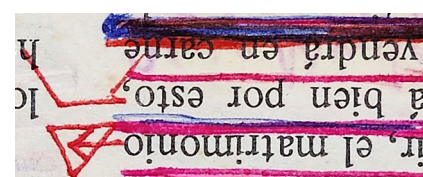 ir, el matrimonio
á bien por esto,
vendrá en carne